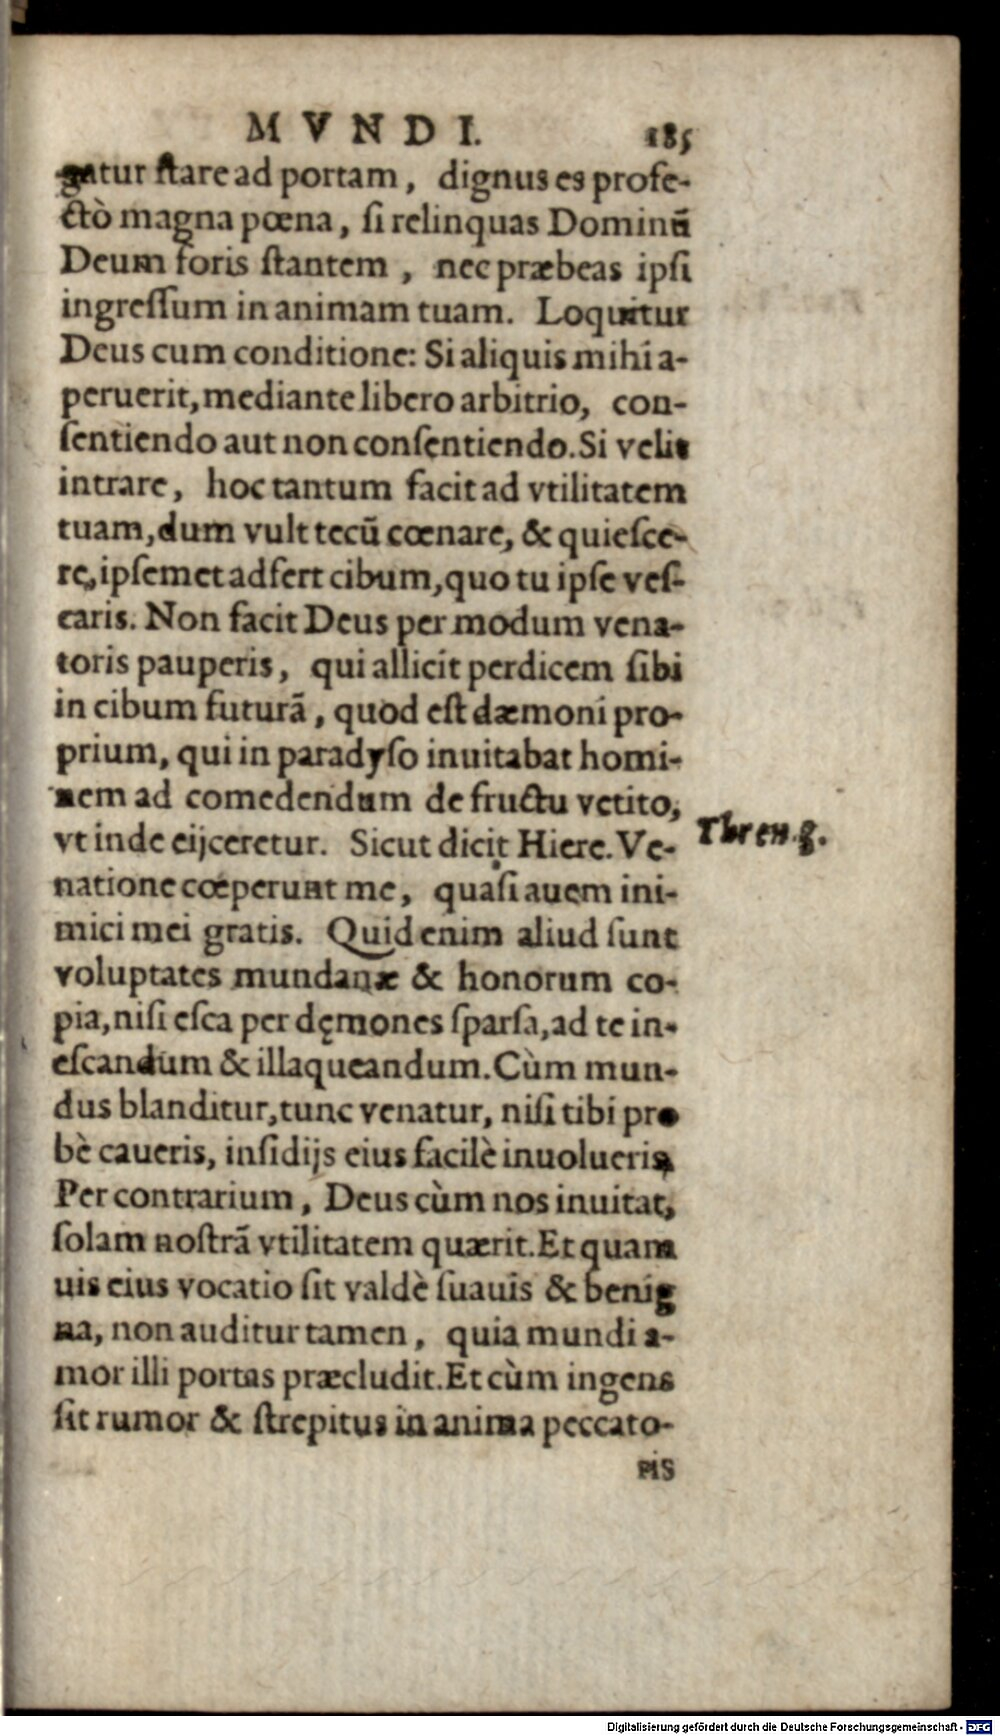 MVNDI. 185
gatur ſtare ad portam, dignus es profe-
ctò magna pœna, ſi relinquas Dominũ
Deum foris ſtantem, nec præbeas ipſi
ingreſſum in animam tuam. Loquitur
Deus cum conditione: Si aliquis mihi a-
peruerit, mediante libero arbitrio, con-
ſentiendo aut non conſentiendo. Si velit
intrare, hoc tantum facit ad vtilitatem
tuam, dum vult tecũ cœnare, & quieſce-
re, ipſemet adfert cibum, quo tu ipſe veſ-
caris. Non facit Deus per modum vena-
toris pauperis, qui allicit perdicem ſibi
in cibum futurã, quod eſt dæmoni pro-
prium, qui in paradyſo inuitabat homi-
nem ad comedendum de fructu vetito,
vt inde eijceretur. Sicut dicit Hiere. Ve-
Thren. 3.
natione cœperunt me, quaſi auem ini-
mici mei gratis. Quid enim aliud ſunt
voluptates mundanæ & honorum co-
pia, niſi eſca per dęmones ſparſa, ad te in-
eſcandum & illaqueandum. Cùm mun-
dus blanditur, tunc venatur, niſi tibi pro
bè caueris, inſidijs eius facilè inuolueris.
Per contrarium, Deus cùm nos inuitat,
ſolam noſtrã vtilitatem quærit. Et quam
uis eius vocatio ſit valdè ſuauis & benig
na, non auditur tamen, quia mundi a-
mor illi portas præcludit. Et cùm ingens
ſit rumor & ſtrepitus in anima peccato-
ris
Digitalisierung gefördert durch die Deutsche Forschungsgemeinschaft - DFG